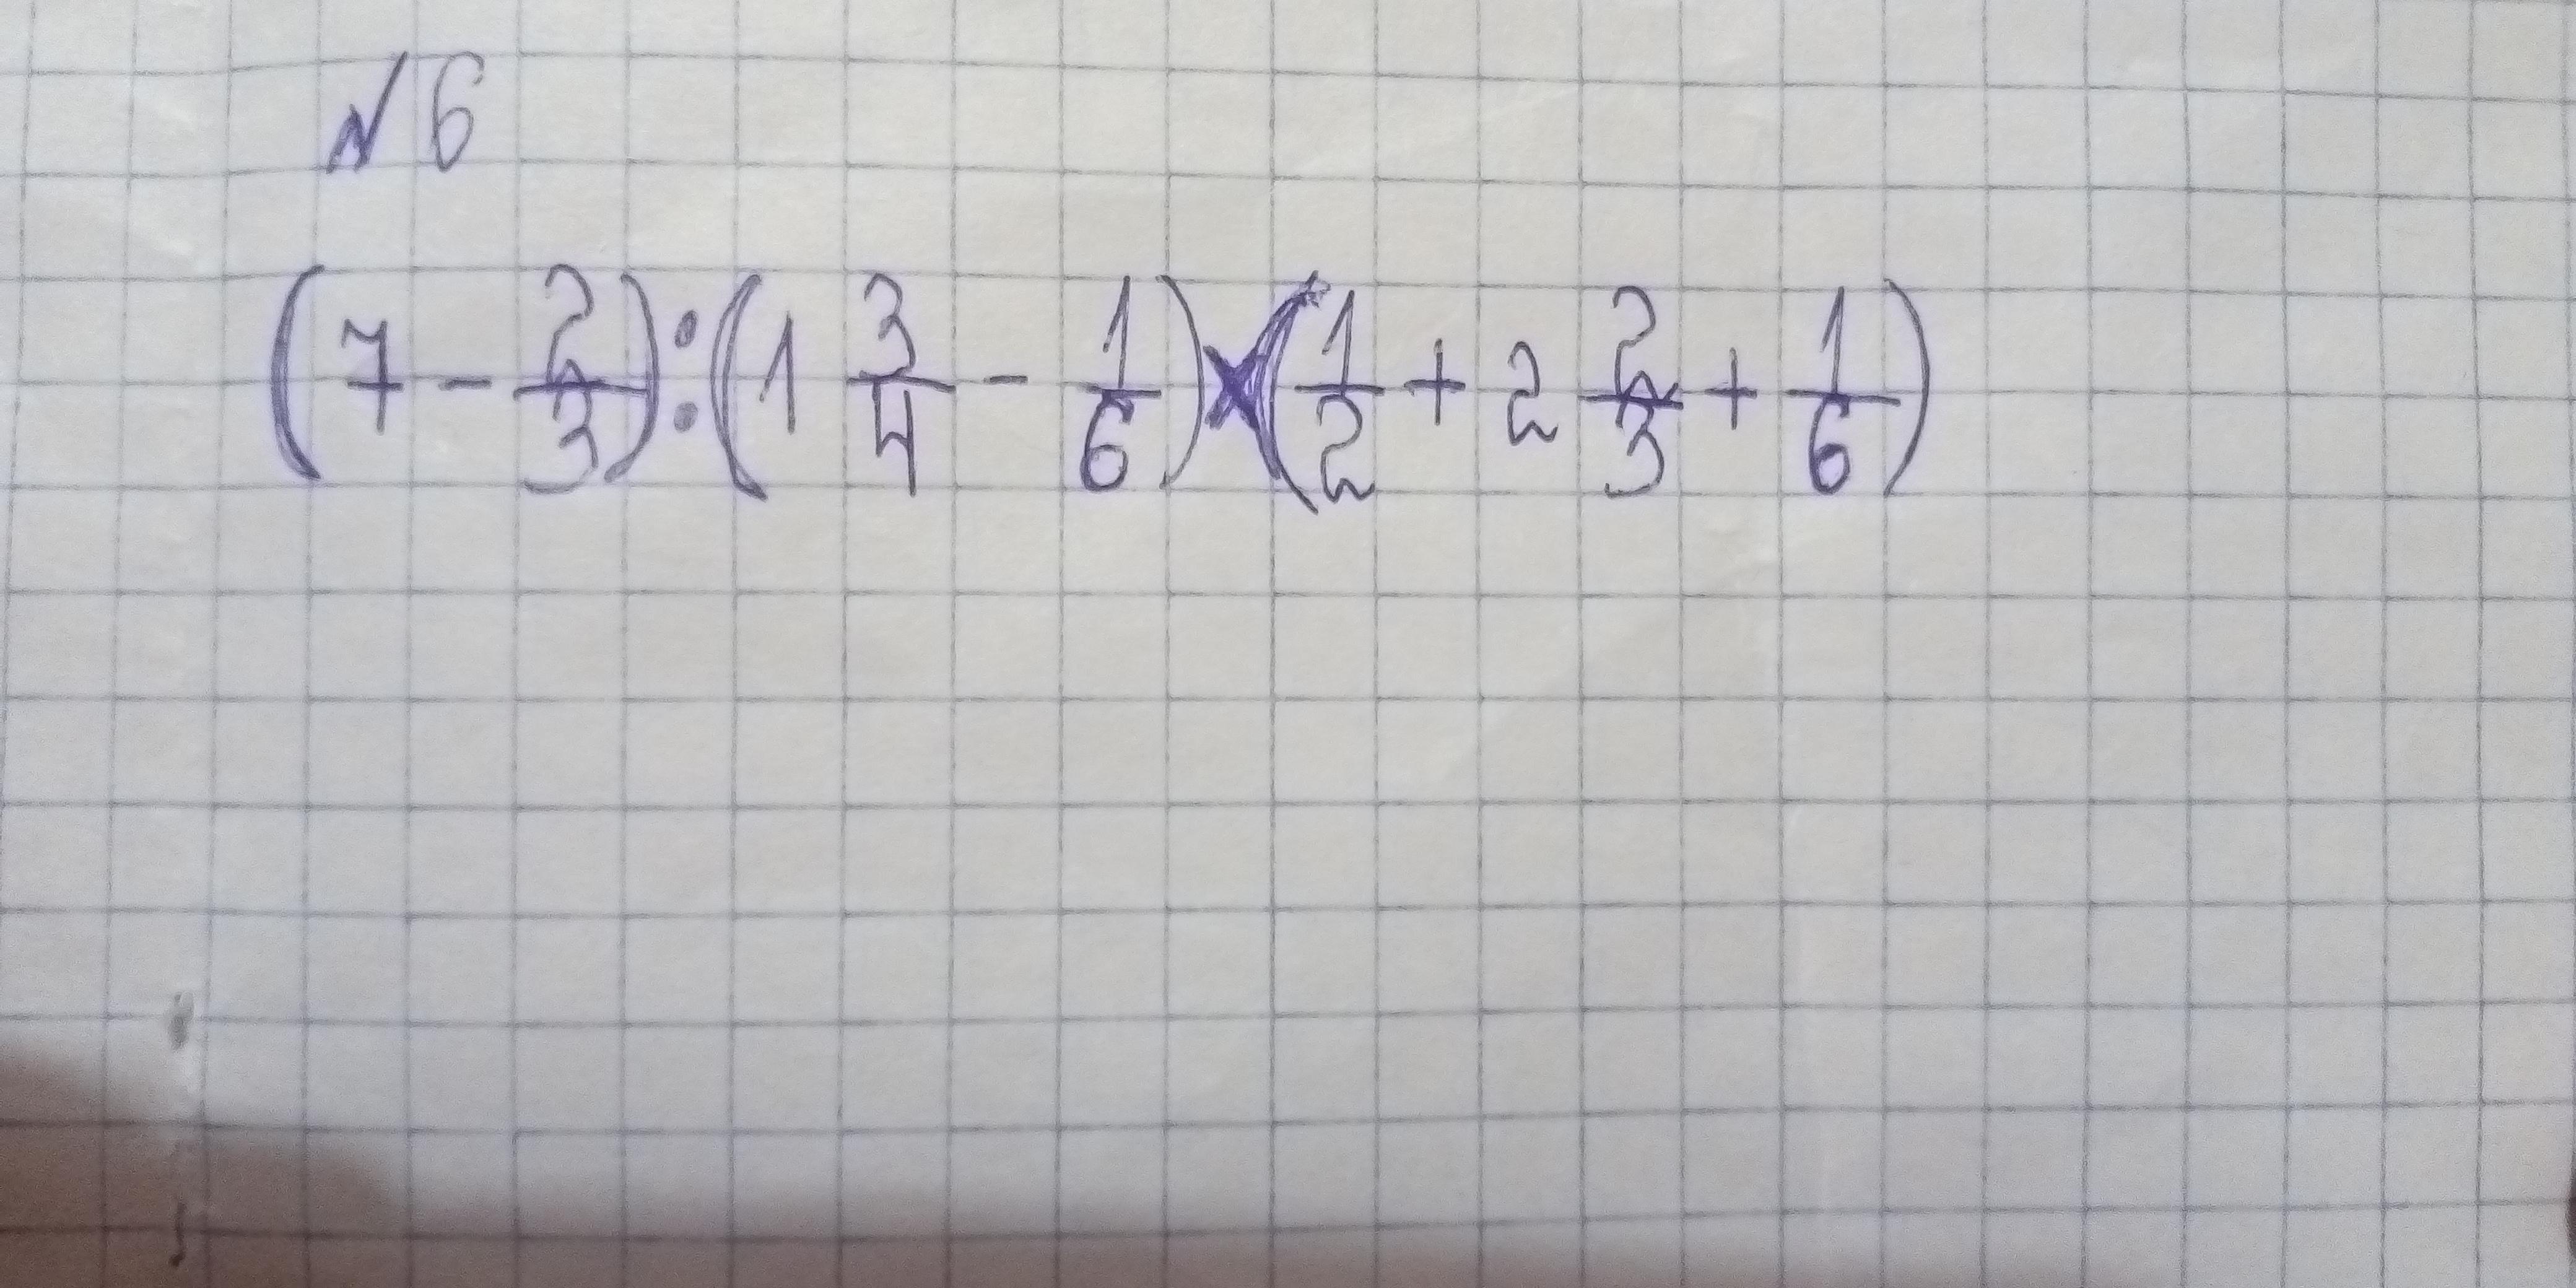 № 6
(7 - 2/3) : (1 3/4 - 1/6) × (1/2 + 2 2/3 + 1/6)